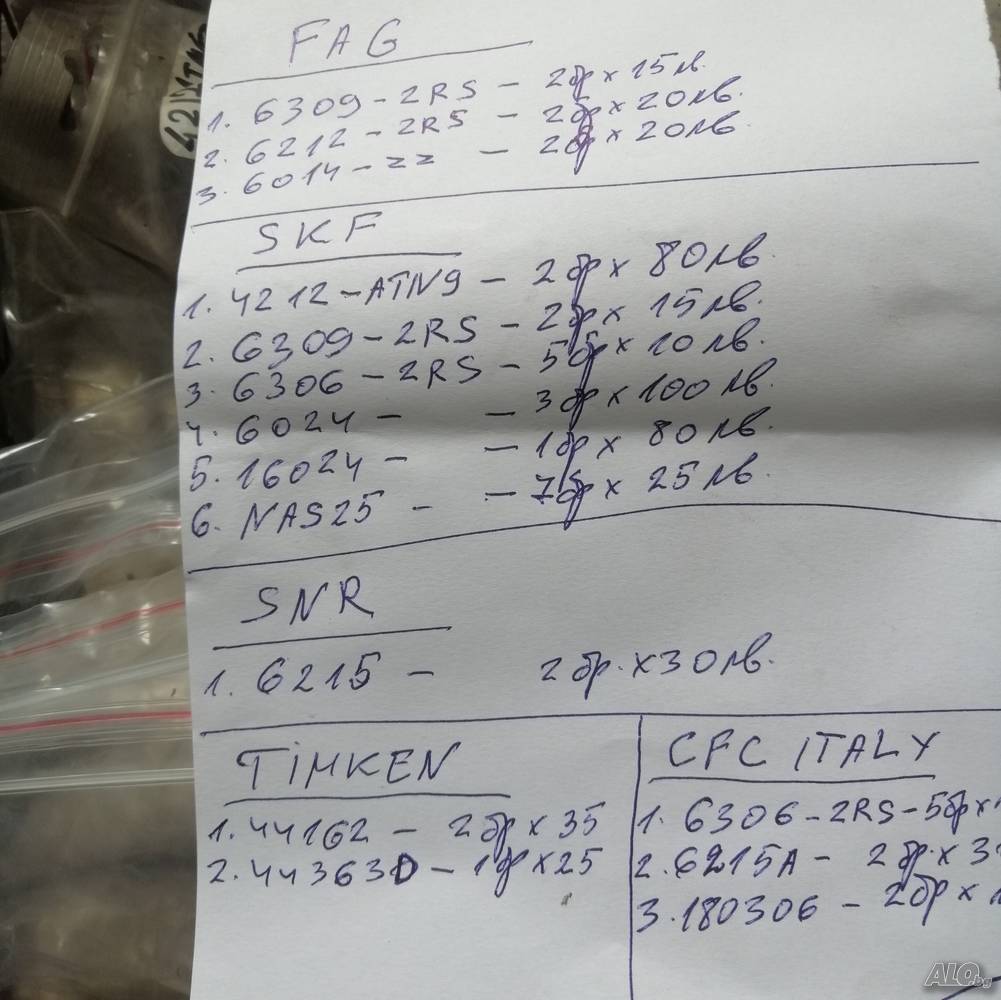 FAG
1. 6309-2RS - 2бр x 15лв.
2. 6212-2RS - 2бр x 20лв.
3. 6014-zz - 2бр x 20лв.
SKF
1. 4212-ATN9 - 2бр x 80лв.
2. 6309-2RS - 2бр x 15лв.
3. 6306-2RS - 5бр x 10лв.
4. 6024 - - 3бр x 100лв.
5. 16024 - - 1бр x 80лв.
6. NAS25 - - 7бр x 25лв.
SNR
1. 6215 - 2бр. x 30лв.
TiMKEN
1. 44162 - 2бр x 35
2. 443630 - 1бр x 25
CFC ITALY
1. 6306-2RS-5бр x
2. 6215A - 2бр. x
3. 180306 - 2бр x
ALO.bg